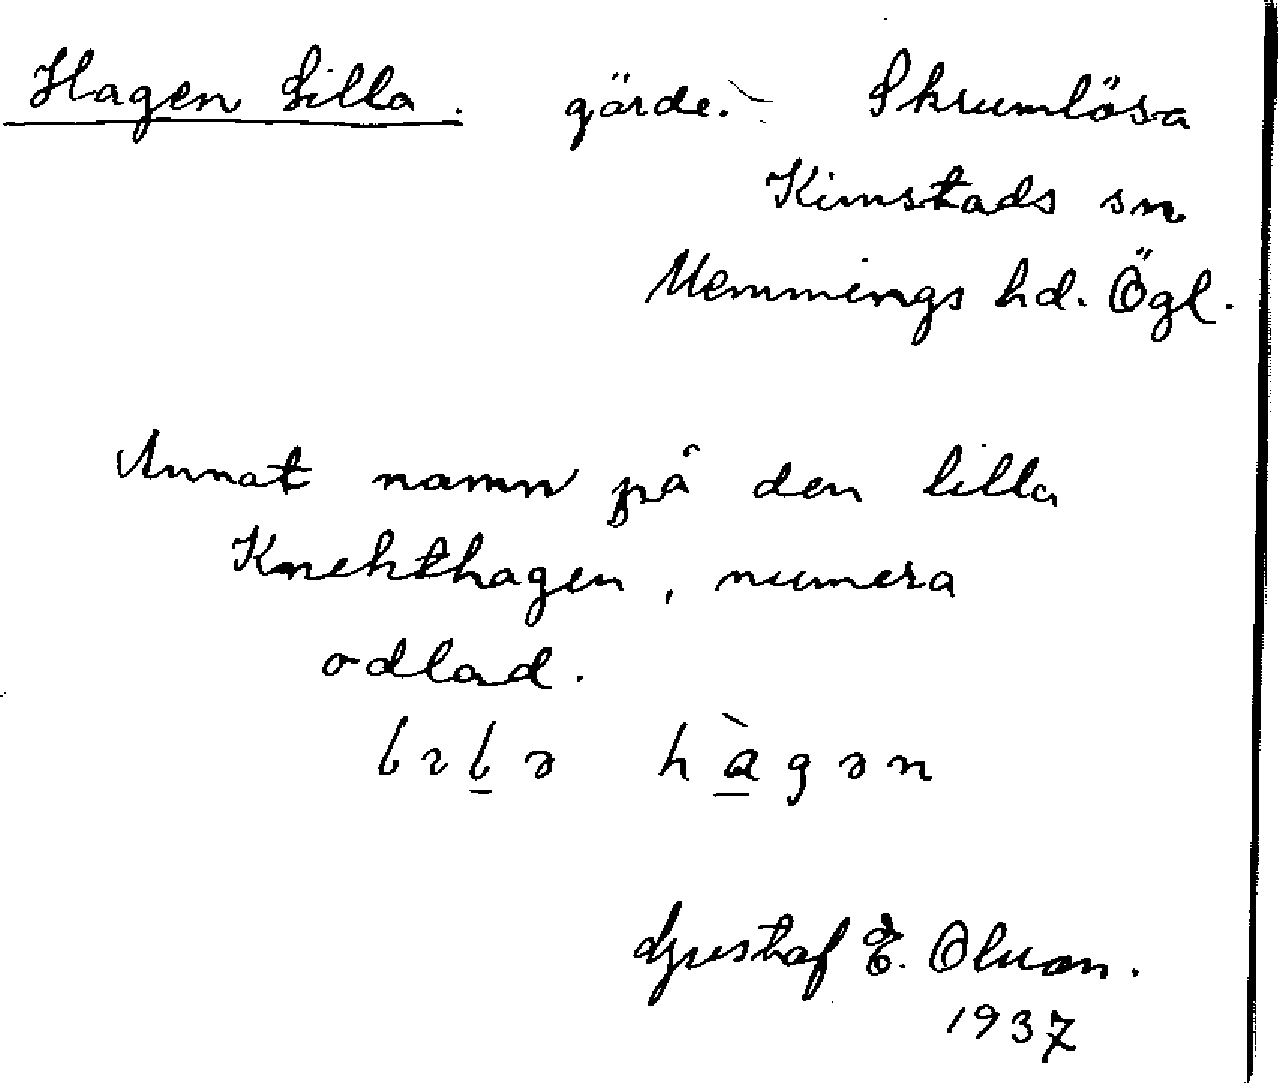 Hagen Lilla. gärde. Skrumlösa
Kimstads sn
Memmings hd. Ögl.
Annat namn på den lilla
Knekthagen, numera
odlad.
hàgən
Gustaf E. Olsson.
1937